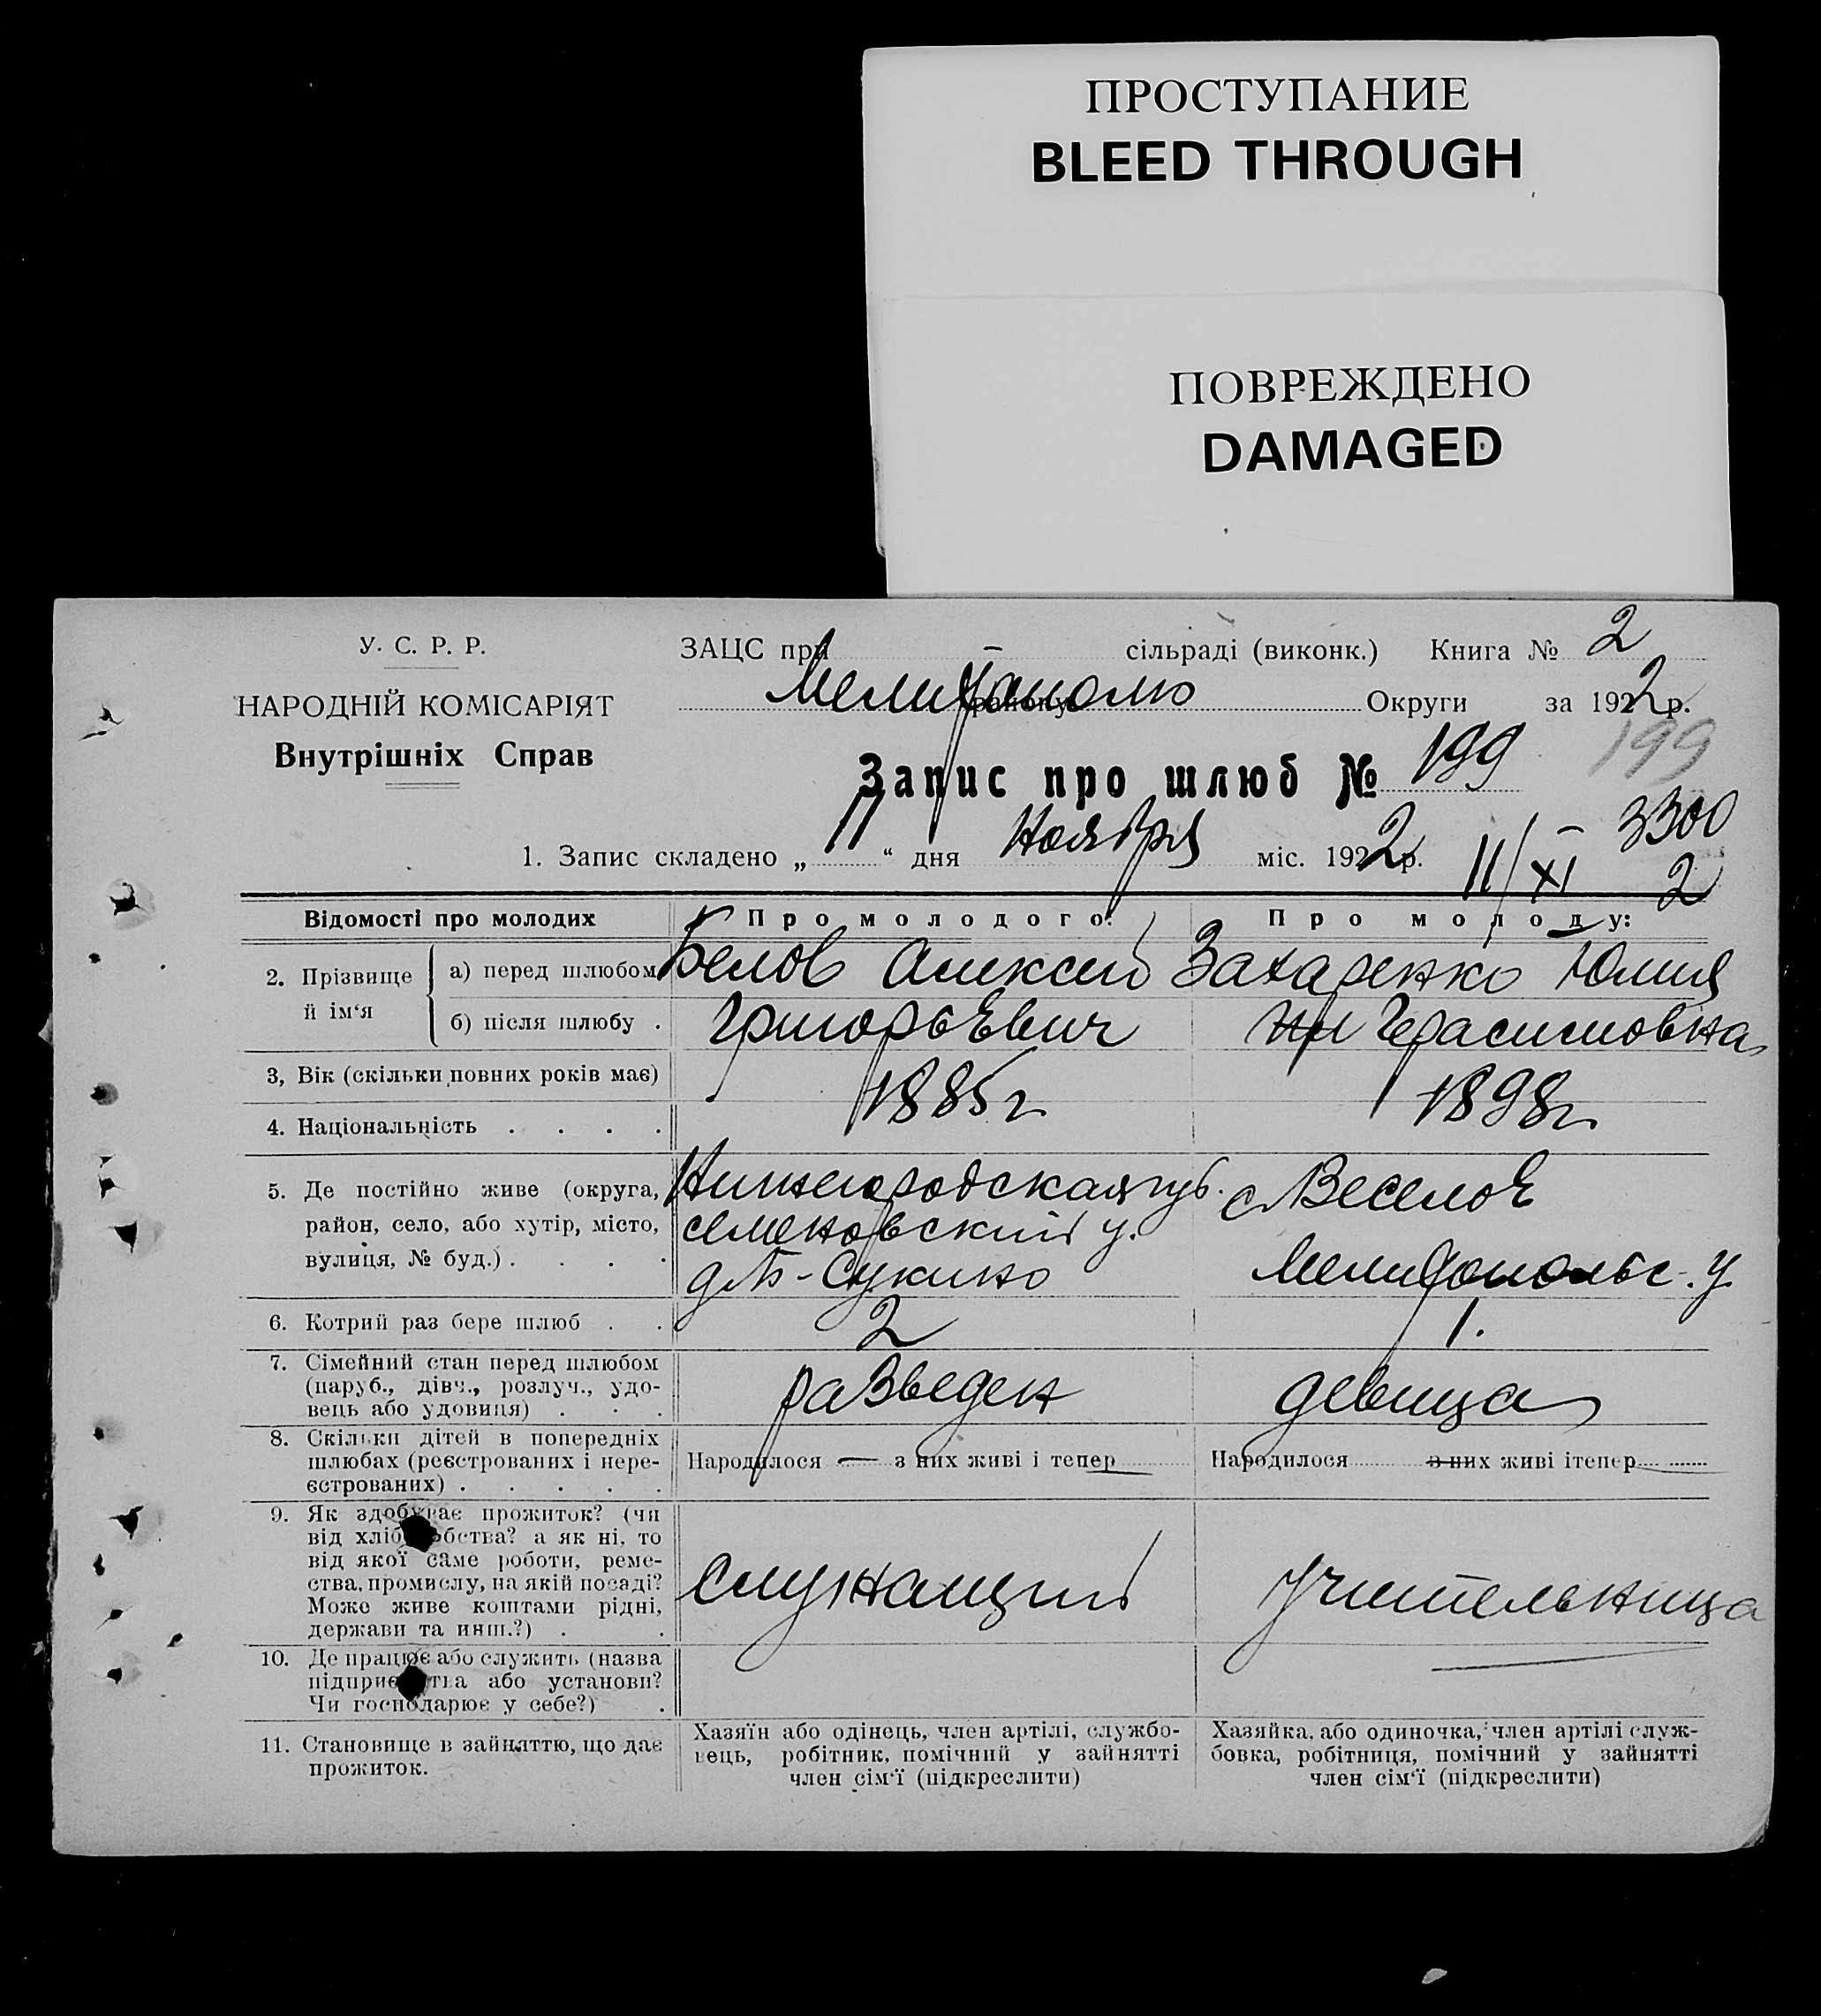 ПРОСТУПАНИЕ
BLEED THROUGH
ПОВРЕЖДЕНО
DAMAGED
У. С. Р. Р.
НАРОДНІЙ КОМІСАРІЯТ
Внутрішніх Справ
ЗАЦС при — сільраді (виконк.) Книга № 2
Мелитополю району Округи за 1922 р.
Запис про шлюб № 199
199
1. Запис складено „ 11 “ дня Ноября міс. 1922 р.
3300
11/XI 2
Відомості про молодих Про молодого: Про молоду:
2. Прізвище й ім‘я
а) перед шлюбом Белов Алексей Захаренко Юлия
б) після шлюбу . Григорьевич Герасимовна
3, Вік (скільки повних років має) 1885 г 1898 г
4. Національність . . . .
5. Де постійно живе (округа, Нижегородская губ. с Веселое
район, село, або хутір, місто, семеновский у.
вулиця, № буд.) . . . . Сукино Мелитопольс. у
6. Котрий раз бере шлюб . . 2 1.
7. Сімейний стан перед шлюбом
(паруб., дівч., розлуч., удо-
вець або удовиця) . . . разведен девица
8. Скільки дітей в попередніх
шлюбах (реєстрованих і нере-
єстрованих) . . . . .
Народилося — з них живі і тепер — Народилося з них живі ітепер —
9. Як здобуває прожиток? (чи
від хліборобства? а як ні, то
від якої саме роботи, реме-
ства, промислу, на якій посаді?
Може живе коштами рідні,
держави та инш.?) . .
служащий учительница
10. Де працює або служить (назва
підприємства або установи?
Чи господарює у себе?) .
11. Становище в зайняттю, що дає
прожиток.
Хазяїн або одінець, член артілі, службо-
вець, робітник, помічний у зайнятті
член сім‘ї (підкреслити)
Хазяйка, або одиночка, член артілі служ-
бовка, робітниця, помічний у зайнятті
член сім‘ї (підкреслити)